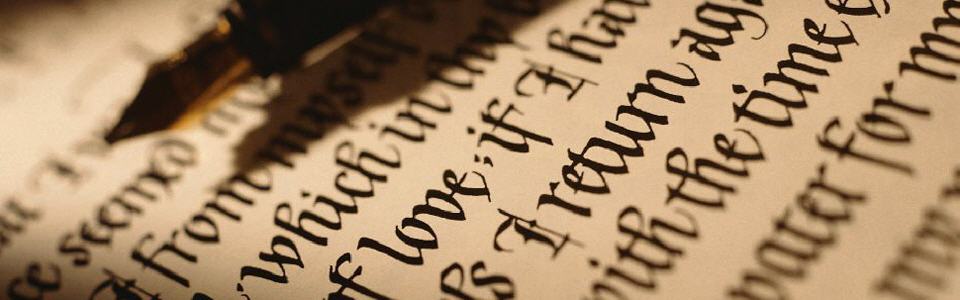 ce seemd
I from myself
which in thy
of love: if I hav
ls I return aga
with the time e
water for my